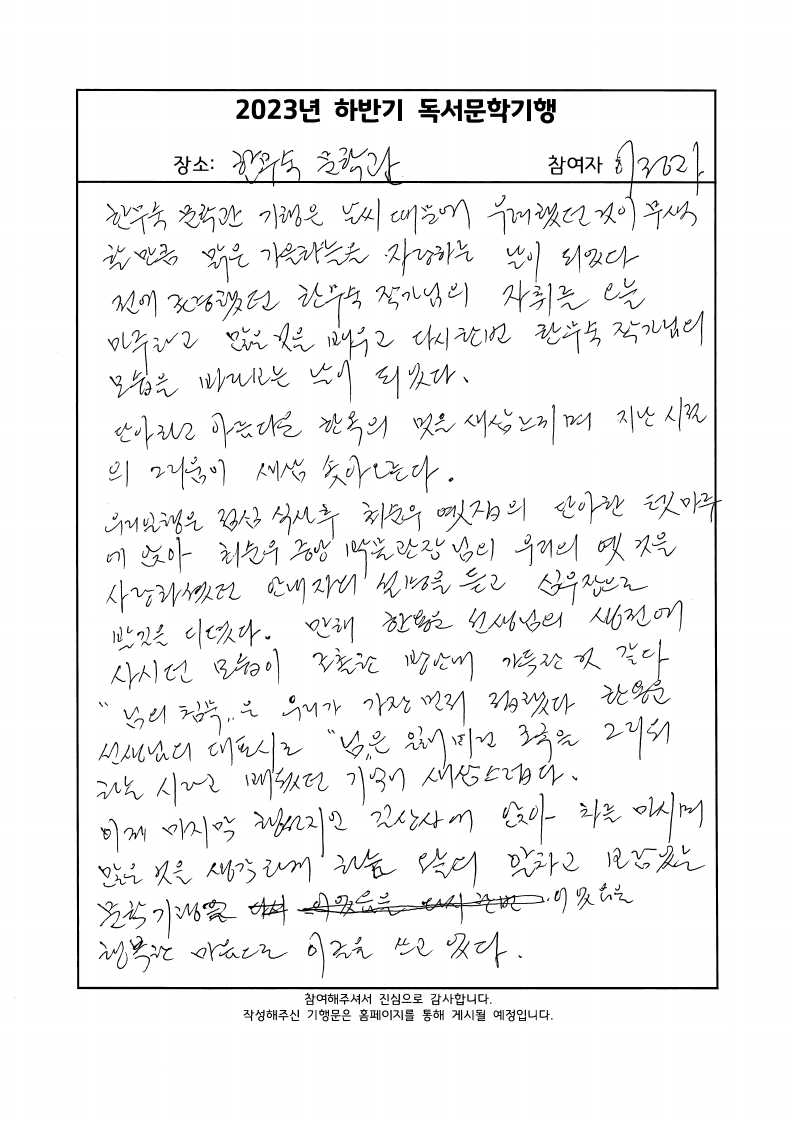 2023년 하반기 독서문학기행
장소: 한무숙 문학관 참여자
한무숙 문학관 기행은 날씨 때문에 우려했던 것이 무색
할 만큼 맑은 가을하늘을 자랑하는 날이 되었다
전에 했던 한무숙 작가님의 자취를 오늘
마주하고 많은 것을 배우고 다시한번 한무숙 작가님의
모습을 바라보는 날이 되었다.
단아하고 아름다운 한옥의 멋을 새삼느끼며 지난 시절
의 그리움이 새삼 솟아오른다.
우리일행은 점심 식사후 최순우 옛집의 단아한 툇마루
에 앉아 최순우 중앙 박물관장님의 우리의 옛 것을
사랑하셨던 안내자의 설명을 듣고 심우장으로
발길을 디뎠다. 만해 한용운 선생님의 생전에
사시던 모습이 조촐한 방안에 가득한 것 같다
"님의 침묵"은 우리가 가장 먼저 접했다 한용운
선생님의 대표시로 "님"은 잃어버린 조국을 그리워
하는 시라고 배웠던 기억이 새삼스럽다.
이제 마지막 행선지인 길상사에 앉아 차를 마시며
많은 것을 생각하게 하는 오늘의 알차고 보람있는
문학기행 이었음을
행복한 마음으로 이글을 쓰고 있다.
참여해주셔서 진심으로 감사합니다.
작성해주신 기행문은 홈페이지를 통해 게시될 예정입니다.